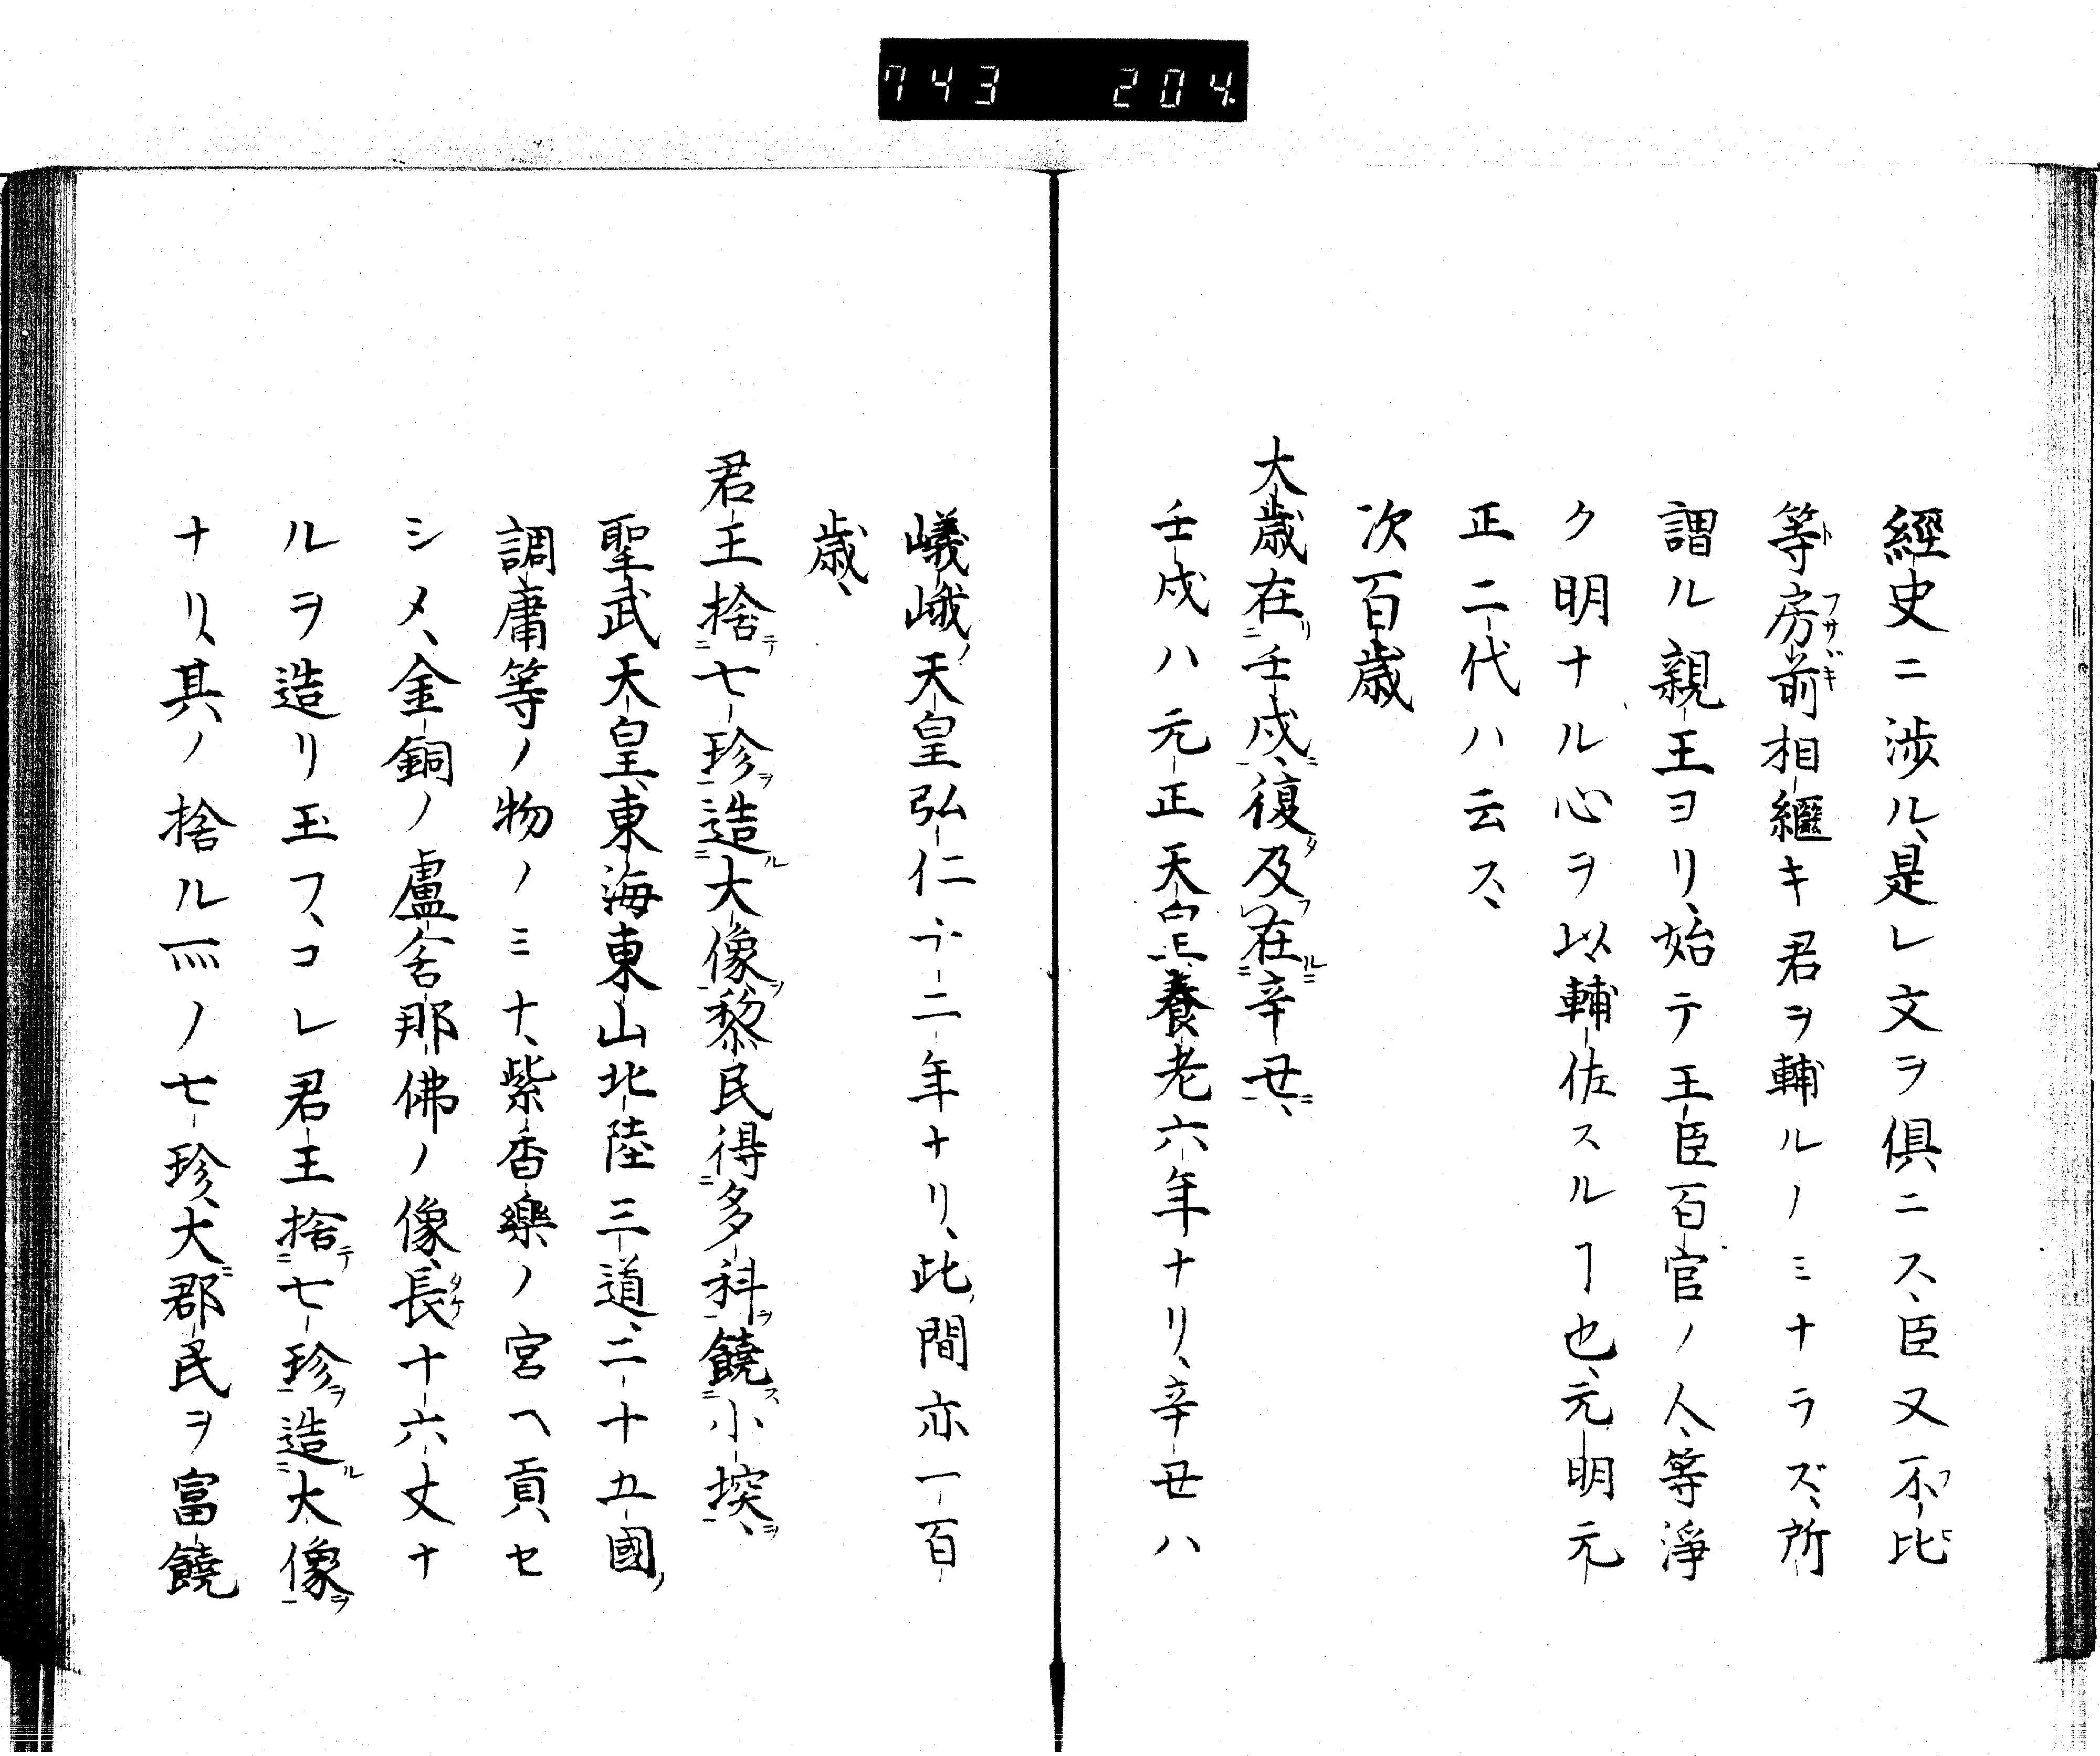 743 204
經史ニ涉ル、是レ文ヲ俱ニス、臣又不比
等房前相繼キ君ヲ輔ルノミナラズ、所
謂ル親王ヨリ、始テ王臣百官ノ人、等淨
ク明ナル心ヲ以輔佐スルヿ也、元明元
正二代ハ云ス、
次百歲
大歲在壬戌、復及在辛丑、
壬戌ハ元正天皇、養老六年ナリ、辛丑ハ
嵯峨天皇弘仁十二年ナリ、此間亦一百
歲、
君王捨七珍造大像黎民得多科饒小堗、
聖武天皇、東海東山北陸三道、二十五國
調庸等ノ物ノミナ、紫香樂ノ宮ヘ貢セ
シメ、金銅ノ盧舍那佛ノ像、長十六丈ナ
ルヲ造リ玉フ、コレ君王捨七珍造大像
ナリ、其ノ捨ル所ノ七珍、大郡民ヲ富饒